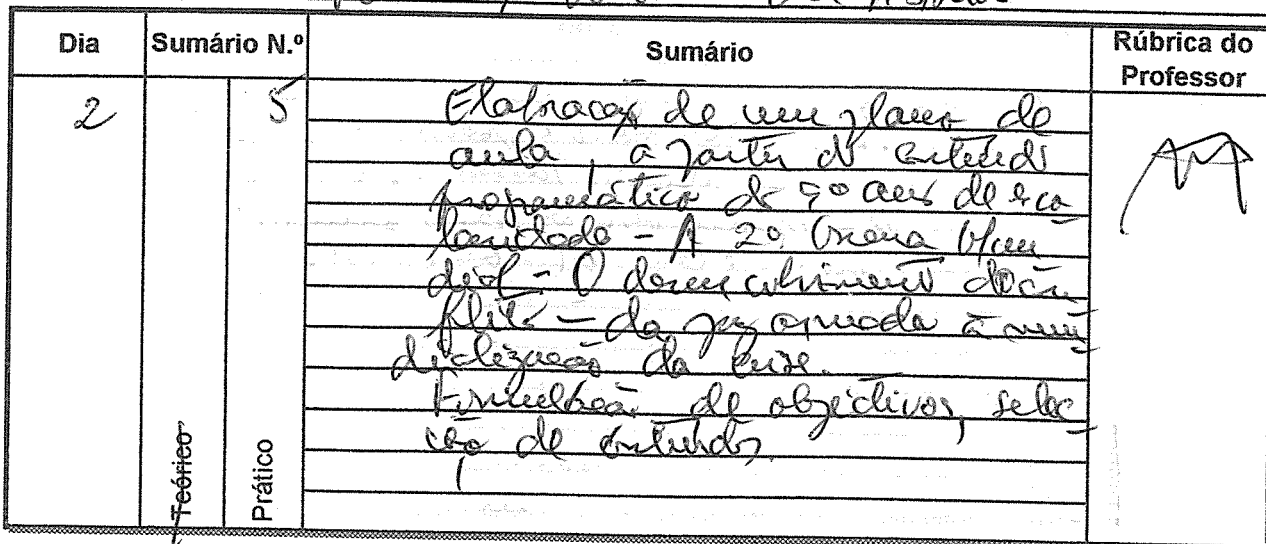 Dia Sumário N.º Sumário Rúbrica do Professor
2 5
Elaboração de um plano de
aula, a partir do conteúdo
programático do 9º ano de esco
laridade - A 2ª Guerra Mun
dial - O desenvolvimento do con
flito - da paz armada à mun
dialização da
Formulação de objectivos, selec
ção de conteúdos.
Teórico
Prático